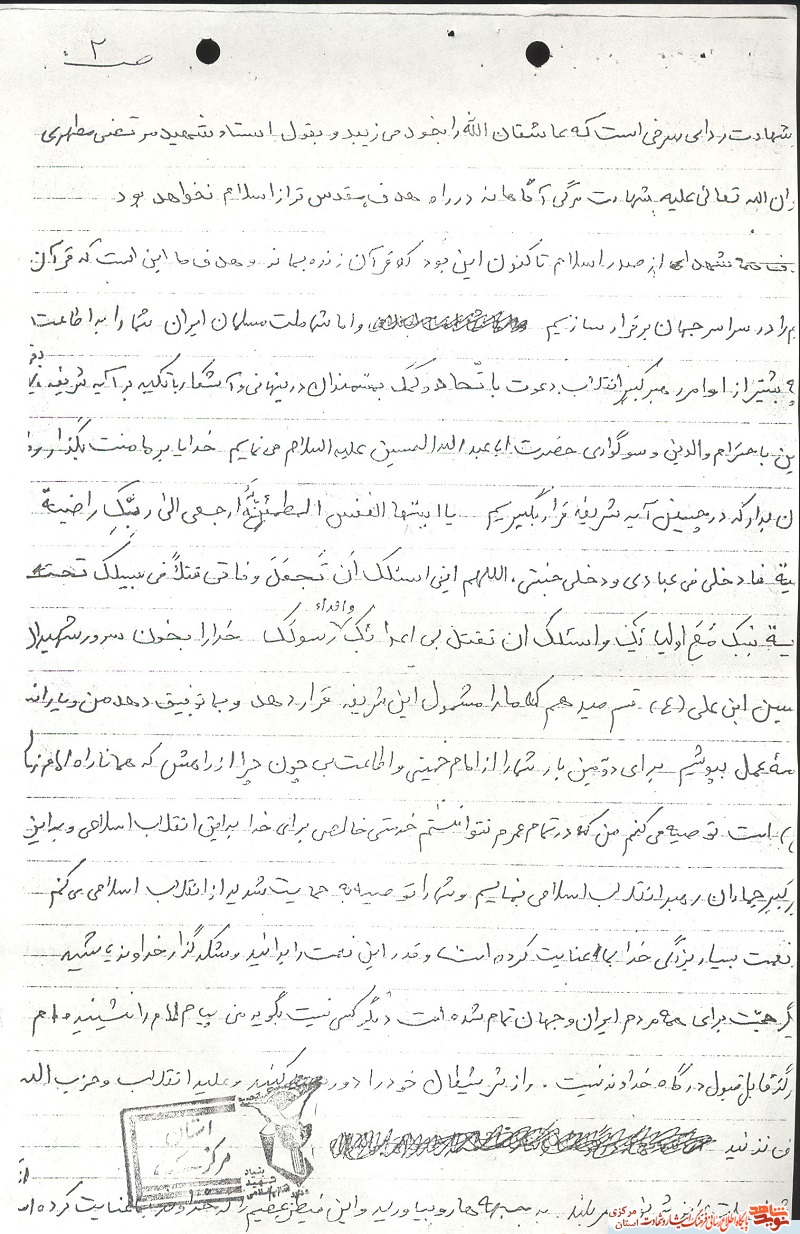 ص ۲
شهادت ردای سرخی است که عاشقان الله را بخود می زیبد و بقول استاد شهید مرتضی مطهری
ان الله تعالی علیه شهادت مرگی آگاهانه در راه هدف مقدس تر از اسلام نخواهد بود
شهدا از صدر اسلام تاکنون این بود که قرآن زنده بماند و هدف ما این است که قرآن
م را در سراسر جهان برقرار سازیم و اما شما ملت مسلمان ایران شما را به اطاعت
بیشتر از اوامر رهبر کبیر انقلاب دعوت با تحاد و کمک بمستمندان در پنهانی و آشکار با تکیه بر آیه شریفه
ین با حترام والدین و سوگواری حضرت ابا عبد الله الحسین علیه السلام می نمایم خدایا بر ما منت بگذار و
ن بدار که در چنین آیه شریفه قرار بگیریم یا ایتها النفس المطمئنة ارجعی الی ربک راضیة
یة فادخلی فی عبادی و دخلی جنتی، اللهم اینی اسئلک ان تجعل وفاتی قتلاً فی سبیلک تحت
یة نبیک مع اولیائک و اسئلک ان تقتل بی اعدائک و اعداء رسولک خدارا بخون سرور شهیدا
سین ابن علی (ع) قسم میدهم که مارا مشمول این شریفه قرار دهد و بما توفیق دهد من و یارانه
مۀ عمل بپوشیم برای دومین بار شما را از امام خمینی و اطاعت بی چون چرا از راهش که همانا راه امام زما
است توصیه می کنم من که در تمام عمرم نتوانستم خدمتی خالصی برای خدا به این انقلاب اسلامی و به این
ر کبیر جماران رهبر انقلاب اسلامی بنمایم و شما را توصیه به حمایت شدید از انقلاب اسلامی می کنم
نعمت بسیار بزرگی خدا بما عنایت کرده است و قدر این نعمت را بدانید و شکر گذار خداوند باشید
یگر حجت برای همه مردم ایران و جهان تمام شده است دیگر کسی نیست بگوید من پیام امام را نشنیده ام
رگز قابل قبول درگاه خداوند نیست. و از شر شیطان خود را دور کنید و علیه انقلاب و حزب الله
ف نزنید
به جبهه ها رو بیاورید و این فیض عظیم را که خداوند بما عنایت کرده
استان
مرکزی
بنیاد
شهید
انقلاب اسلامی
نوید شاهد
پایگاه اطلاع رسانی فرهنگ ایثار و شهادت
استان مرکزی